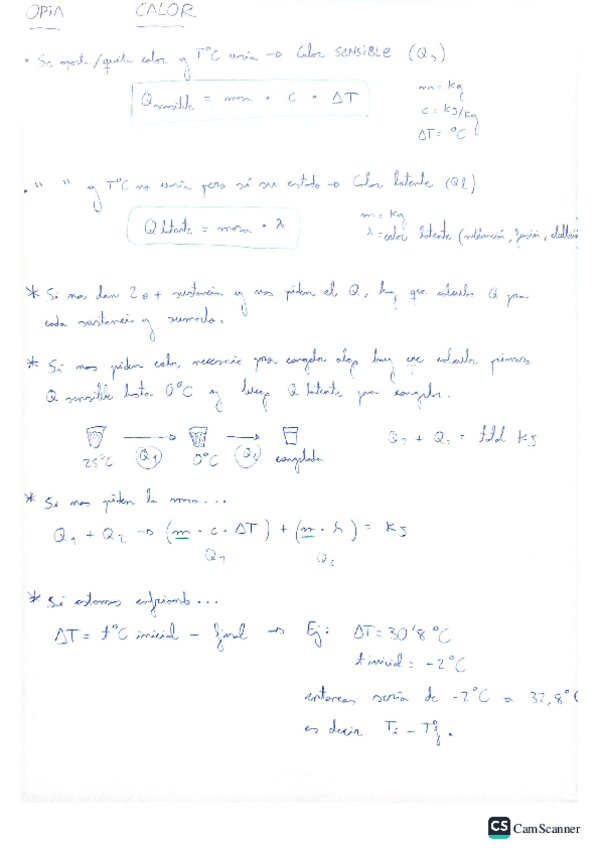 OPIA CALOR
• Se aporta/quita calor y TºC varía → Calor SENSIBLE (Qs)
Q sensible = masa · c · ΔT
m = kg
c = kJ/kg
ΔT = ºC
• " " y TºC no varía pero sí su estado → Calor latente (Ql)
Q latente = masa · λ
m = kg
λ = calor latente (sublimación, fusión, ebullición
* Si nos dan 2 o + sustancias y nos piden el Q, hay que calcular Q para
cada sustancia y sumarlo.
* Si nos piden calor necesario para congelar algo hay que calcular primero
Q sensible hasta 0ºC y luego Q latente para congelar.
25ºC Q1 0ºC Q2 congelada
Q1 + Q2 = total kJ
* Si nos piden la masa...
Q1 + Q2 → (m · c · ΔT) + (m · λ) = kJ
Q1 Q2
* Si estamos enfriando...
ΔT = tºC inicial - final → Ej: ΔT = 30'8ºC
t inicial = -2ºC
entonces sería de -2ºC a 32,8º
es decir Ti - Tf.
CS CamScanner